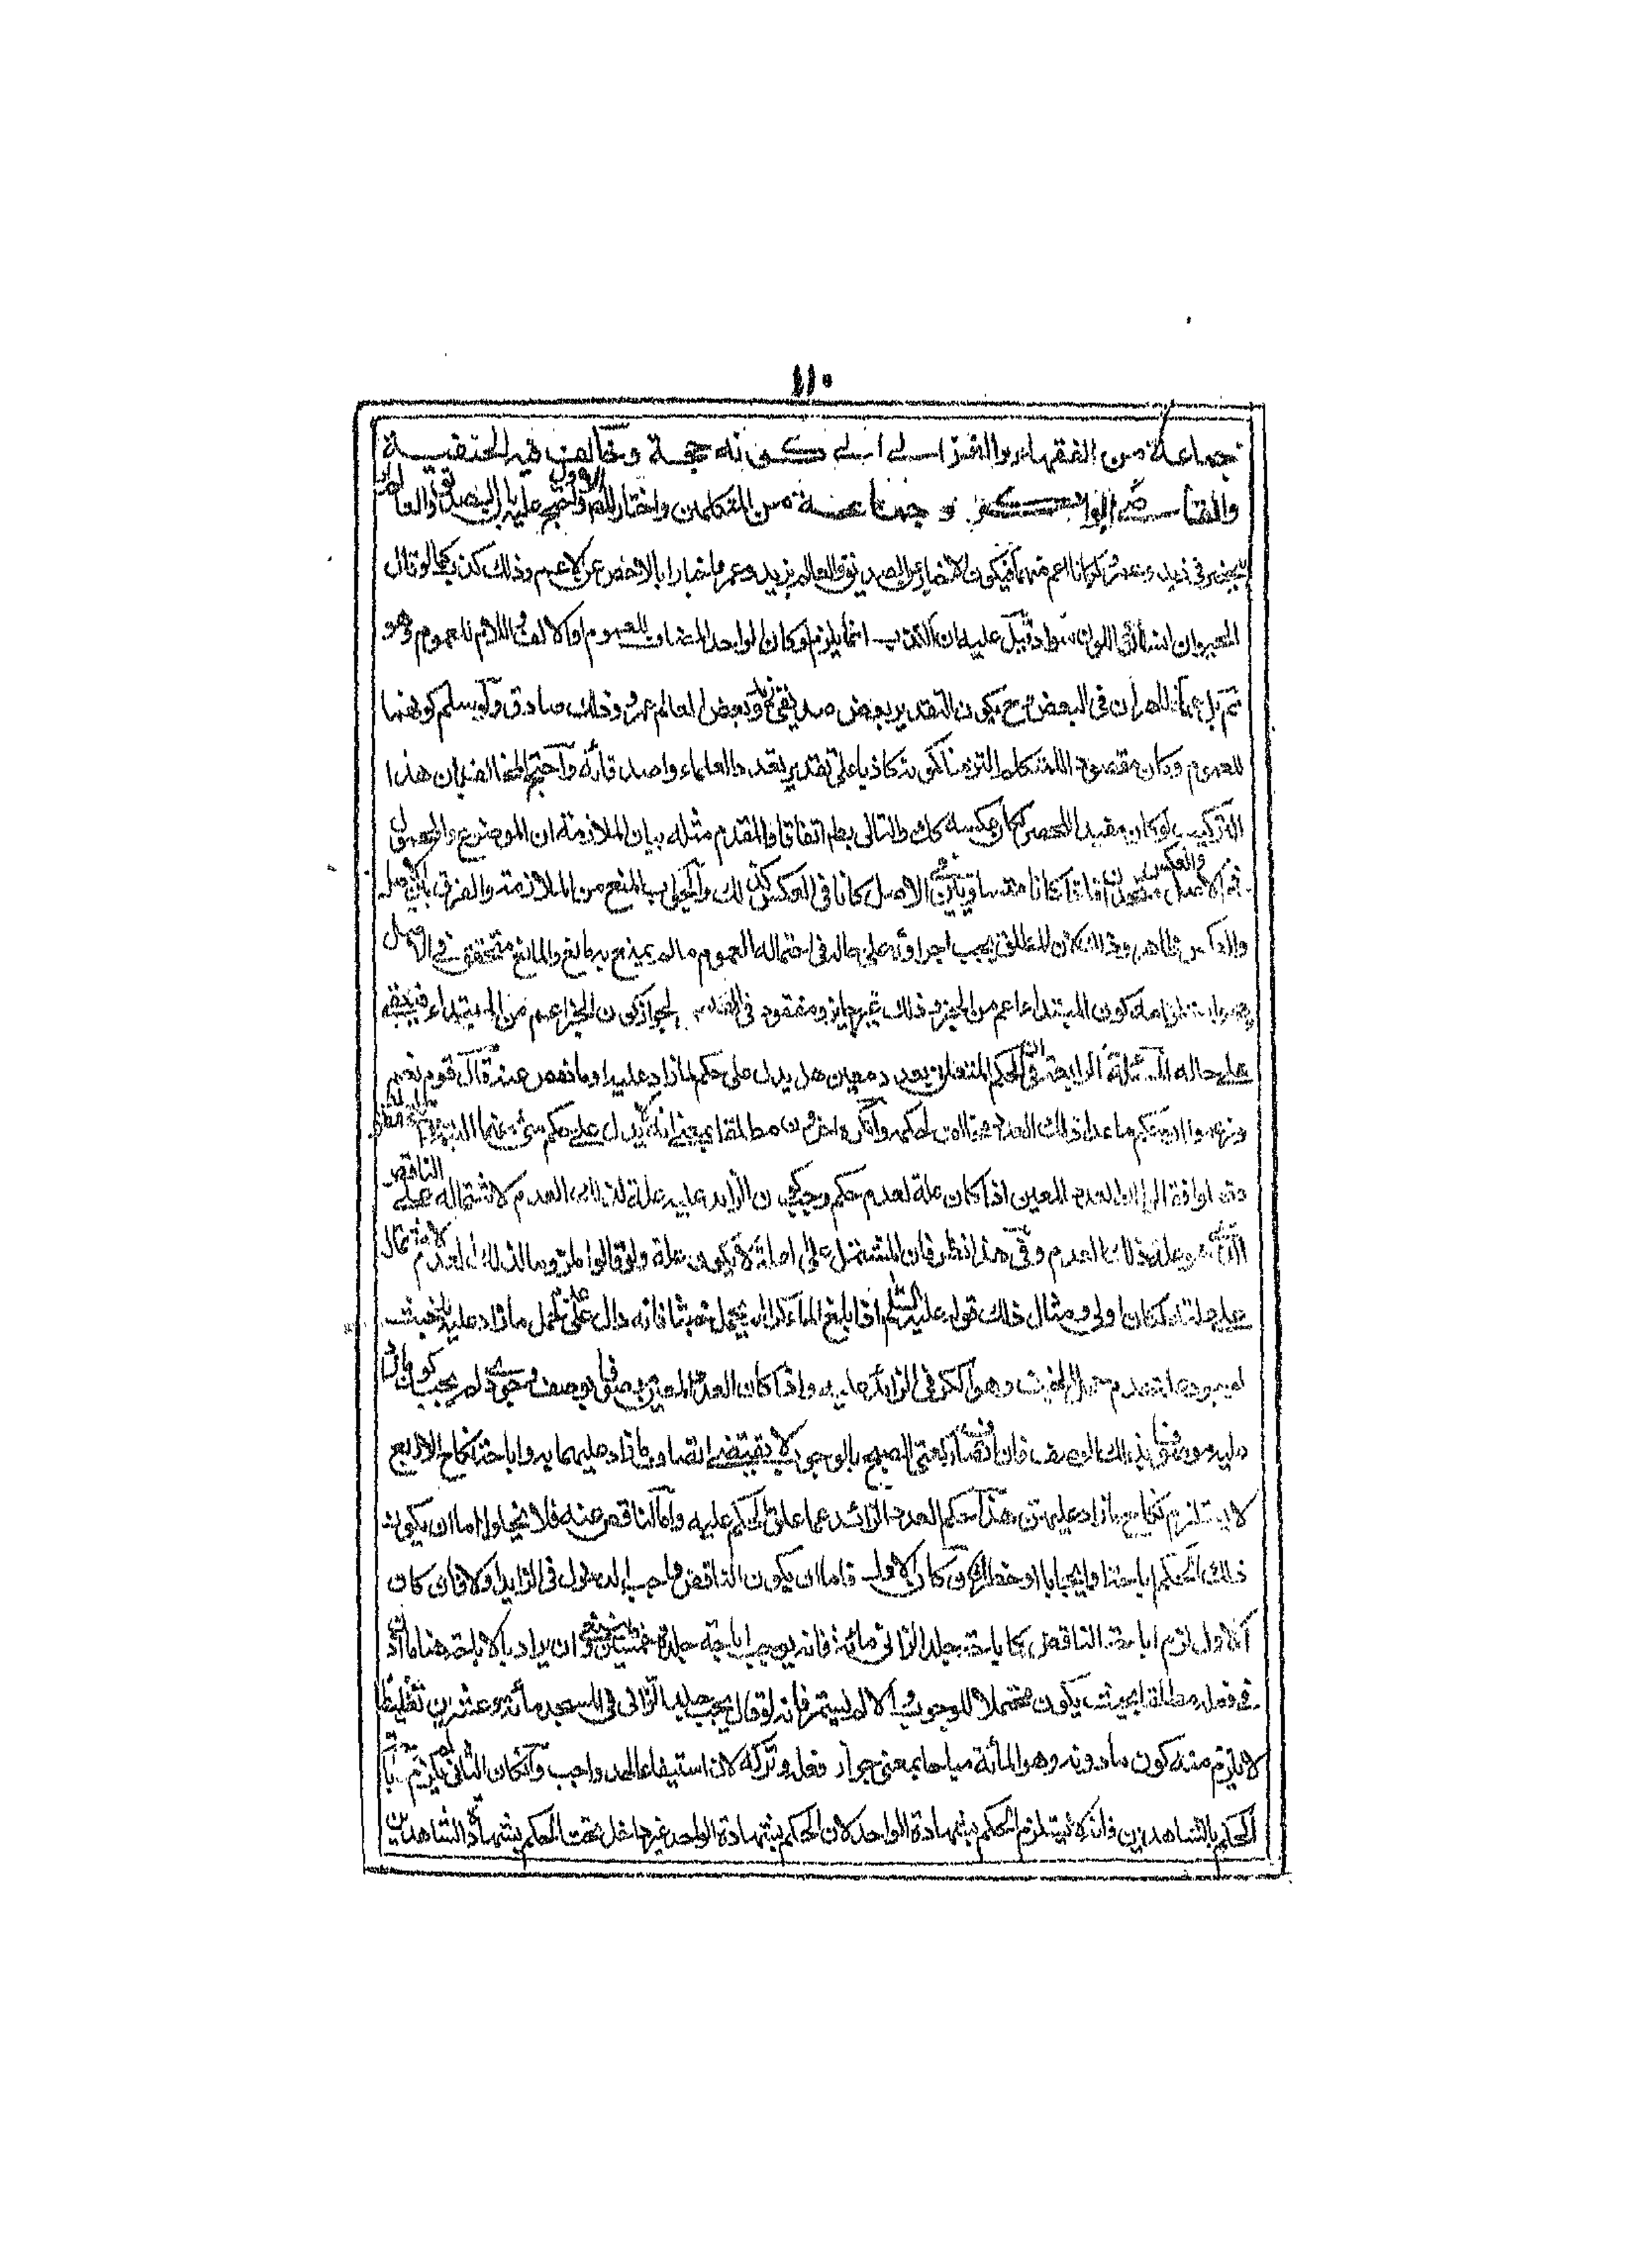 ١١٠
جماعة من الفقهاء والغزالي الى كونه حجة وخالف فيه الحنفية
والقاضي ابو بكر وجماعة من المتكلمين واختار المص الاول واحتج عليه بان الصديق او العالم
في زيد وعمر كانا اعم منهما فيكون الاخبار عن الصديق والعالم بزيد وعمر اخبارا بالاخص عن الاعم وذلك كذب كما لو قال
الحيوان انسان اللون سواد قيل عليه ان الكذب انما يلزم لو كان الواحد المضاف للعموم او الالف واللام للعموم وهو
مم بل هما ظاهران في البعض وح يكون التقدير بعض صديقي زيد وبعض العالم عمرو وذلك صادق ولو سلم كونهما
للعموم وكان مقصود المتكلم التزمنا كونه كاذبا على تقدير تعدد العلماء واصدقائه واحتج المخالف بان هذا
التركيب لو كان مفيدا للحصر لكان عكسه كك والتالي بط اتفاقا فالمقدم مثله بيان الملازمة ان الموضوع والمحمول
في الاصل والعكس فاذا كانا متساويين في الاصل كانا في العكس كذلك والجواب المنع من الملازمة والفرق بين الاصل
والعكس ظاهر وذلك لان المطلق يجب اجراؤه على حاله في احتماله العموم ما لم يمنع به مانع والمانع متحقق في الاصل
وهو استلزامه كون المبتداء اعم من الخبر وذلك غير جايز ومفقود في العكس لجواز كون الخبر اعم من المبتداء فيبقى
على حاله المسئلة الرابعة في ان الحكم المتعلق بعدد معين هل يدل على حكم ما زاد عليه او ما نقص عنه قال قوم نعم
وزعموا ان حكم ما عدا ذلك العدد مخالف لحكمه وانكر اخرون مطلقا بمعنى انه لا يدل على حكم شئ منهما
العدد المعين اذا كان علة لعدم حكم وجب كون الزايد عليه علة لذلك العدم لاشتماله على الناقص
وعلة ذلك العدم وفي هذا نظر فان المشتمل على العلة لا يكون علة ولو قالوا ملزوما لذلك العدم لاشتماله
على علته لكان اولى ومثال ذلك قوله عليه السلم اذا بلغ الماء كرا لم يحمل خبثا فانه دال على عدم حمل ما زاد عليه خبثا
لوجود علة عدم حمل الخبث وهو الكر في الزائد عليه واذا كان العدد المعين موصوفا بوصف وجودي لم يجب كون ما زاد
عليه موصوفا بذلك الوصف فان اتصاف ركعتي الصبح بالوجوب لا يقتضي اتصاف ما زاد عليهما به واباحة نكاح الاربع
لا يستلزم نكاح ما زاد عليهن هذا حكم العدد الزائد عما علق الحكم عليه واما الناقص عنه فلا يخلوا اما ان يكون
ذلك الحكم اباحة او ايجابا او حظرا فان كان الاول فاما ان يكون الناقص واجب الدخول في الزايد او لا فان كان
الاول لزم اباحة الناقص كاباحة جلد الزاني مائة فانه يوجب اباحة جلده خمسين وان يراد بالاباحة هنا ما اذن
في فعله مطلقا بحيث يكون محتملا للوجوب والا لم يستمر فانه لو قال يجب جلد الزاني في المسجد مائة وعشرين تغليظا
لا يلزم منه كون ما دونه وهو المائة مباحا بمعنى جواز فعله وتركه لان استيفاء الحد واجب وان كان الثاني لم يلزم
الحكم بالشاهدين فانه لا يستلزم الحكم بشهادة الواحد لان الحكم بشهادة الواحد غير داخل تحت الحكم بشهادة الشاهدين